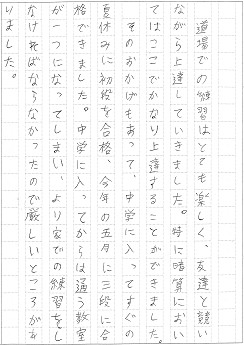 道場での練習はとても楽しく、友達と競い
ながら上達していきました。特に暗算におい
てはここでかなり上達することができました。
そのおかげもあって、中学に入ってすぐの
夏休みに初段を合格、今年の五月に三段に合
格できました。中学に入ってからは通う教室
が一つになってしまい、より家での練習をし
なければならなかったので厳しいところがあ
りました。